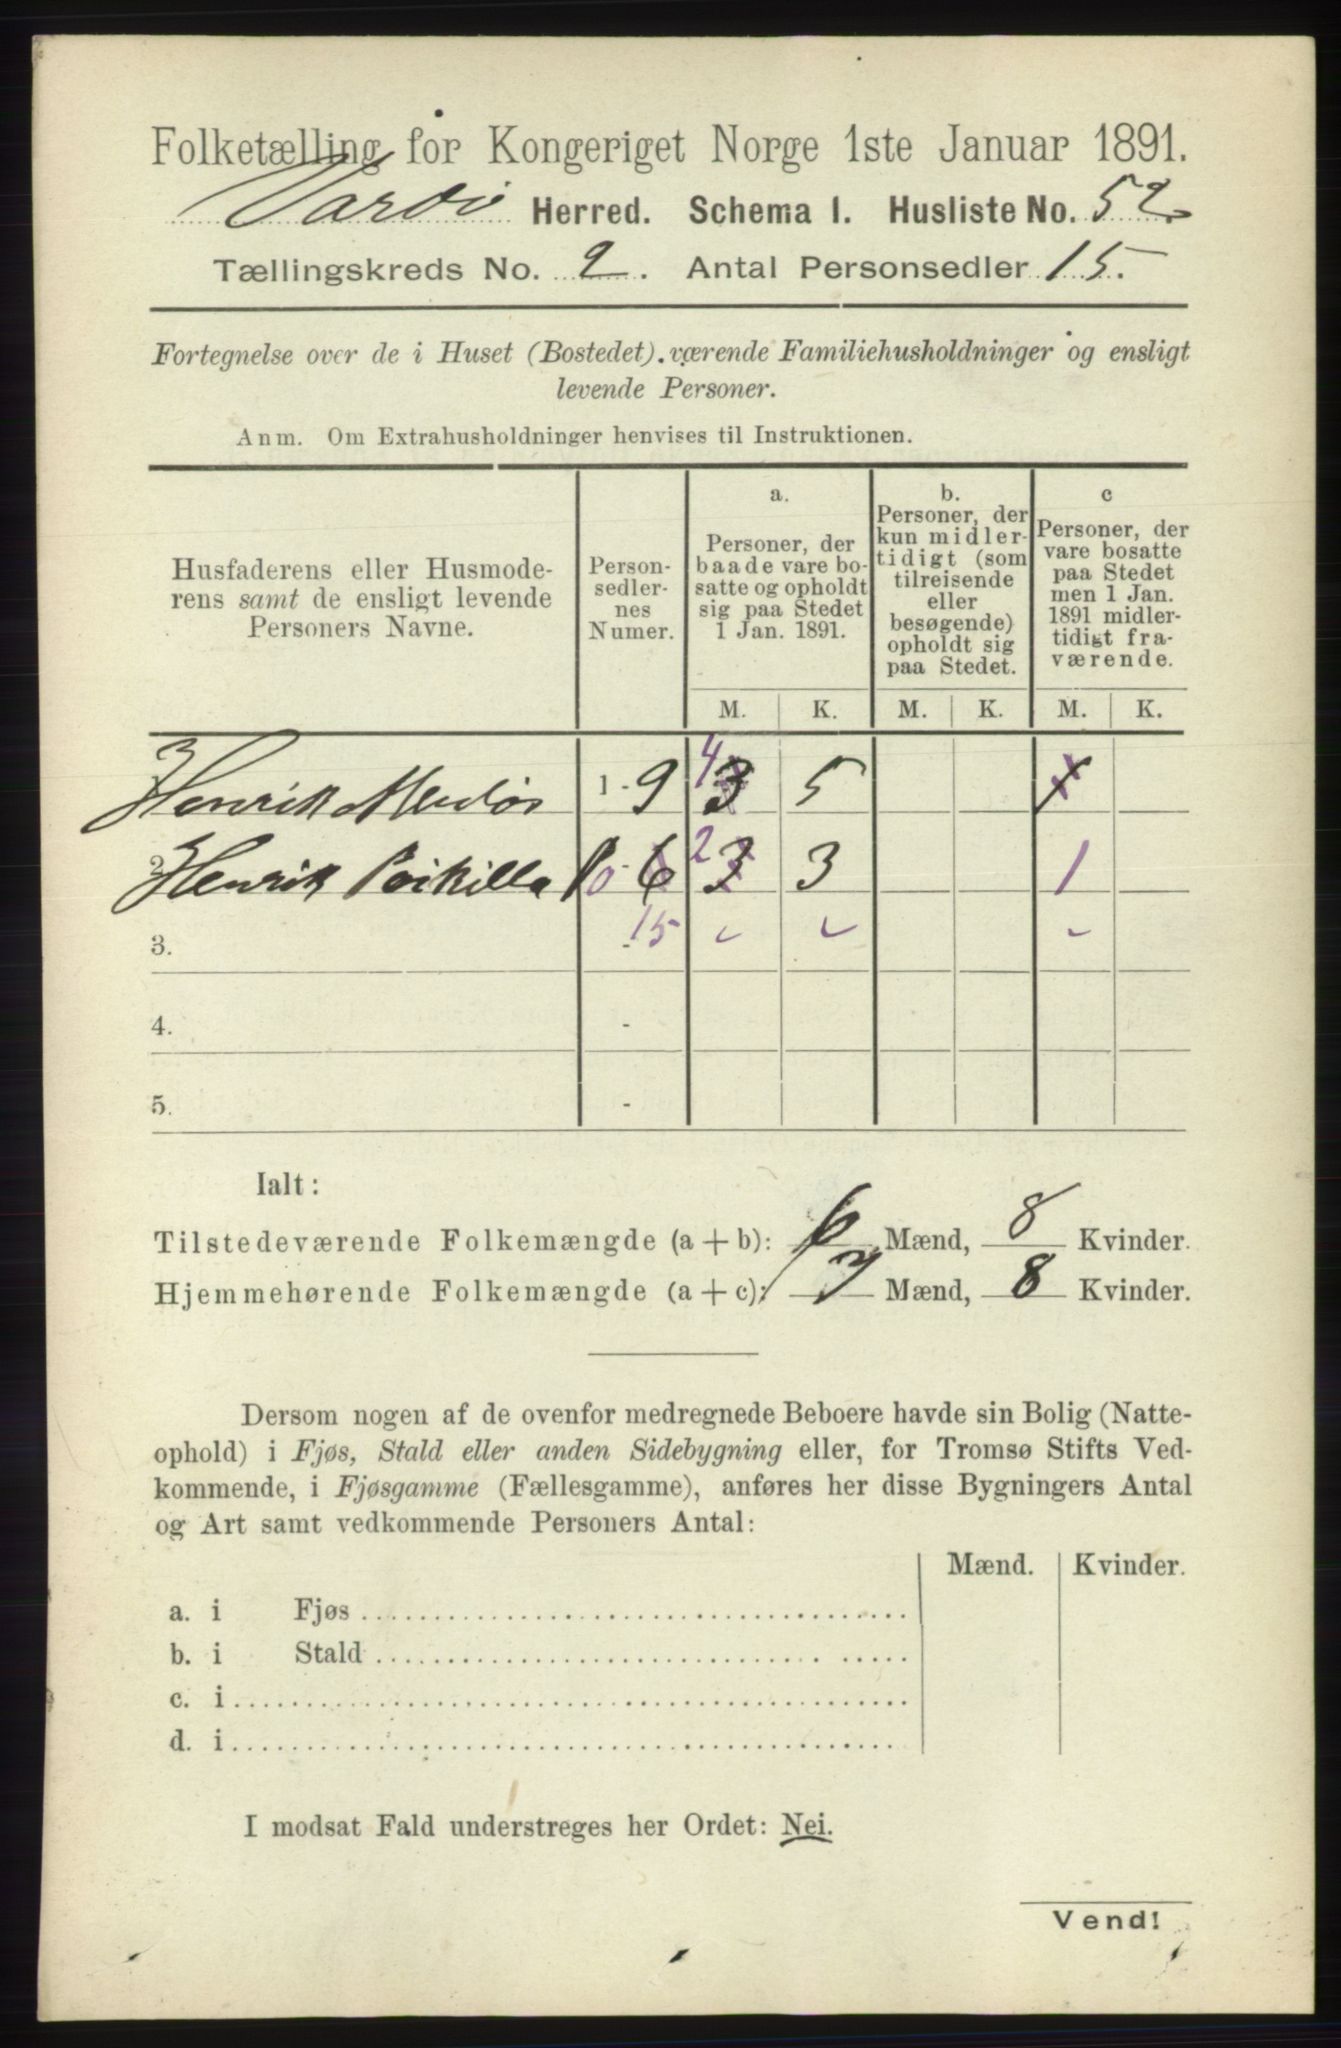 Folketælling for Kongeriget Norge 1ste Januar 1891.
Vardø Herred. Schema 1. Husliste No. 52.
Tællingskreds No. 2. Antal Personsedler 15.
Fortegnelse over de i Huset (Bostedet) værende Familiehusholdninger og ensligt
levende Personer.
Anm. Om Extrahusholdninger henvises til Instruktionen.
Husfaderens eller Husmode-
rens samt de ensligt levende
Personers Navne.
Person-
sedler-
nes
Numer.
a.
Personer, der
baade vare bo-
satte og opholdt
sig paa Stedet
1 Jan. 1891.
b.
Personer, der
kun midler-
tidigt (som
tilreisende
eller
besøgende)
opholdt sig
paa Stedet.
c
Personer, der
vare bosatte
paa Stedet
men 1 Jan.
1891 midler-
tidigt fra-
værende.
M. K. M. K. M. K.
Henrik 1 - 9 4 3 5 1
2. Henrik 10 - 6 2 3 3 1
3. - 15
4. -
5. -
Ialt:
Tilstedeværende Folkemængde (a + b): 6 Mænd, 8 Kvinder.
Hjemmehørende Folkemængde (a + c): 7 Mænd, 8 Kvinder.
Dersom nogen af de ovenfor medregnede Beboere havde sin Bolig (Natte-
ophold) i Fjøs, Stald eller anden Sidebygning eller, for Tromsø Stifts Ved-
kommende, i Fjøsgamme (Fællesgamme), anføres her disse Bygningers Antal
og Art samt vedkommende Personers Antal:
Mænd. Kvinder.
a. i Fjøs
b. i Stald
c. i
d. i
I modsat Fald understreges her Ordet: Nei.
Vend!